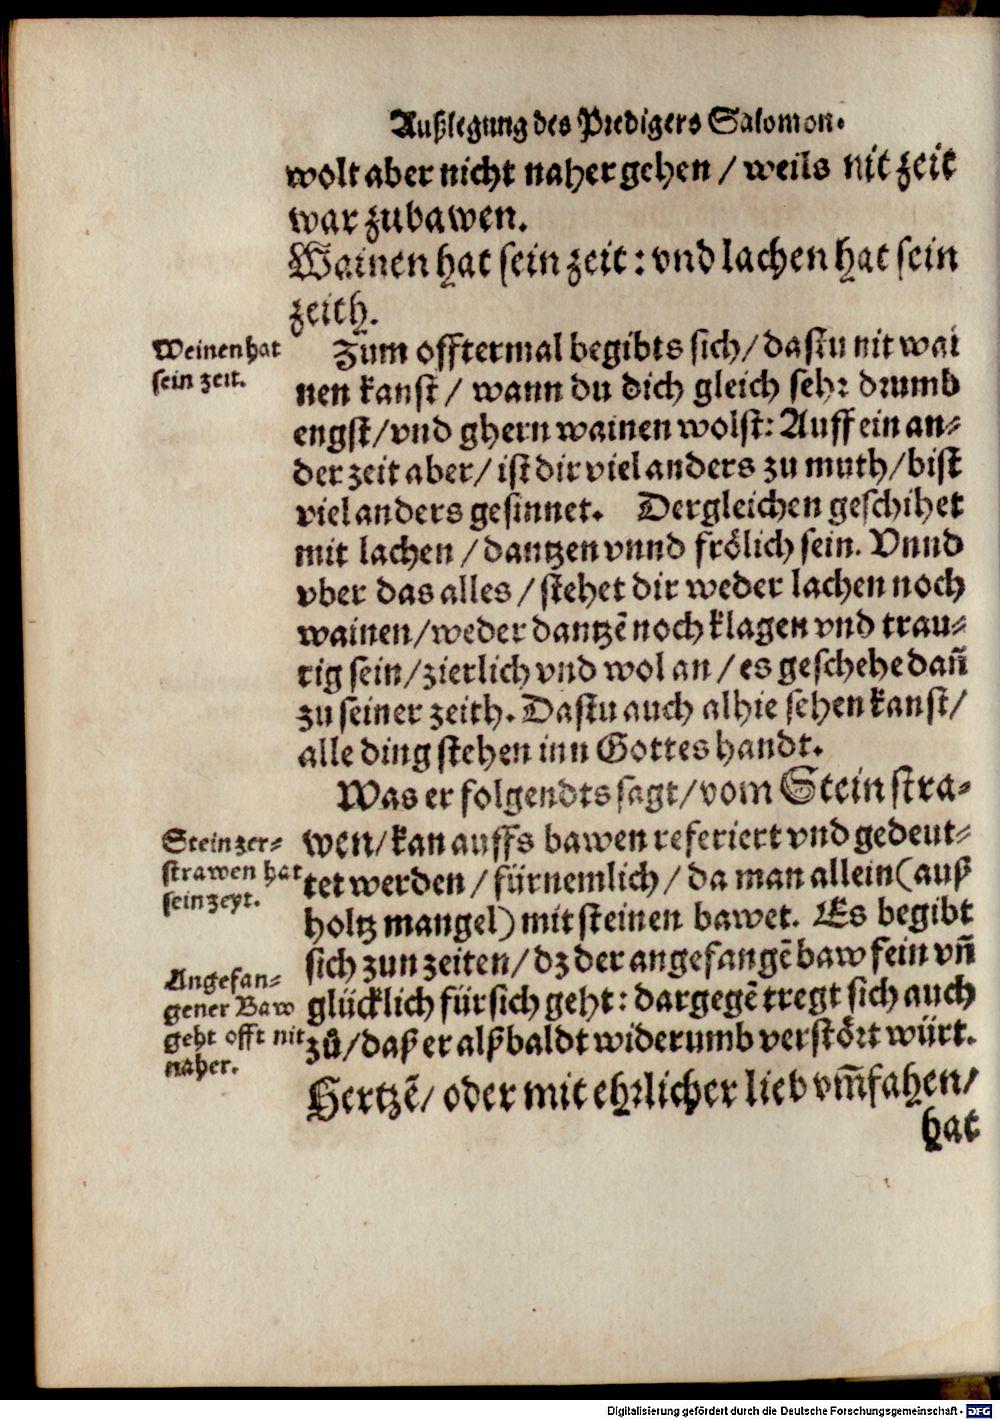 Außlegung des Predigers Salomon.
wolt aber nicht naher gehen / weils nit zeit
war zubawen.
Wainen hat sein zeit: vnd lachen hat sein
zeith.
Weinen hat
sein zeit.
Zum offtermal begibts sich/ dastu nit wai
nen kanst / wann du dich gleich sehr drumb
engst/ vnd ghern wainen wolst: Auff ein an⸗
der zeit aber/ ist dir viel anders zu muth/ bist
viel anders gesinnet. Dergleichen geschihet
mit lachen / dantzen vnnd frölich sein. Vnnd
vber das alles / stehet dir weder lachen noch
wainen/ weder dantzē noch klagen vnd trau⸗
rig sein/ zierlich vnd wol an / es geschehe dañ
zu seiner zeith. Dastu auch alhie sehen kanst/
alle ding stehen inn Gottes handt.
Was er folgendts sagt/ vom Stein stra⸗
Stein zer⸗
strawen hat
sein zeyt.
wen/ kan auffs bawen referiert vnd gedeut⸗
tet werden / fürnemlich / da man allein (auß
holtz mangel) mit steinen bawet. Es begibt
sich zun zeiten/ dz der angefangē baw fein vñ
glücklich für sich geht: dargegē tregt sich auch
zů/ daß er alßbaldt widerumb verstört würt.
Angefan⸗
gener Baw
geht offt nit
naher.
Hertzē/ oder mit ehrlicher lieb vm̃fahen/
hat
Digitalisierung gefördert durch die Deutsche Forschungsgemeinschaft - DFG